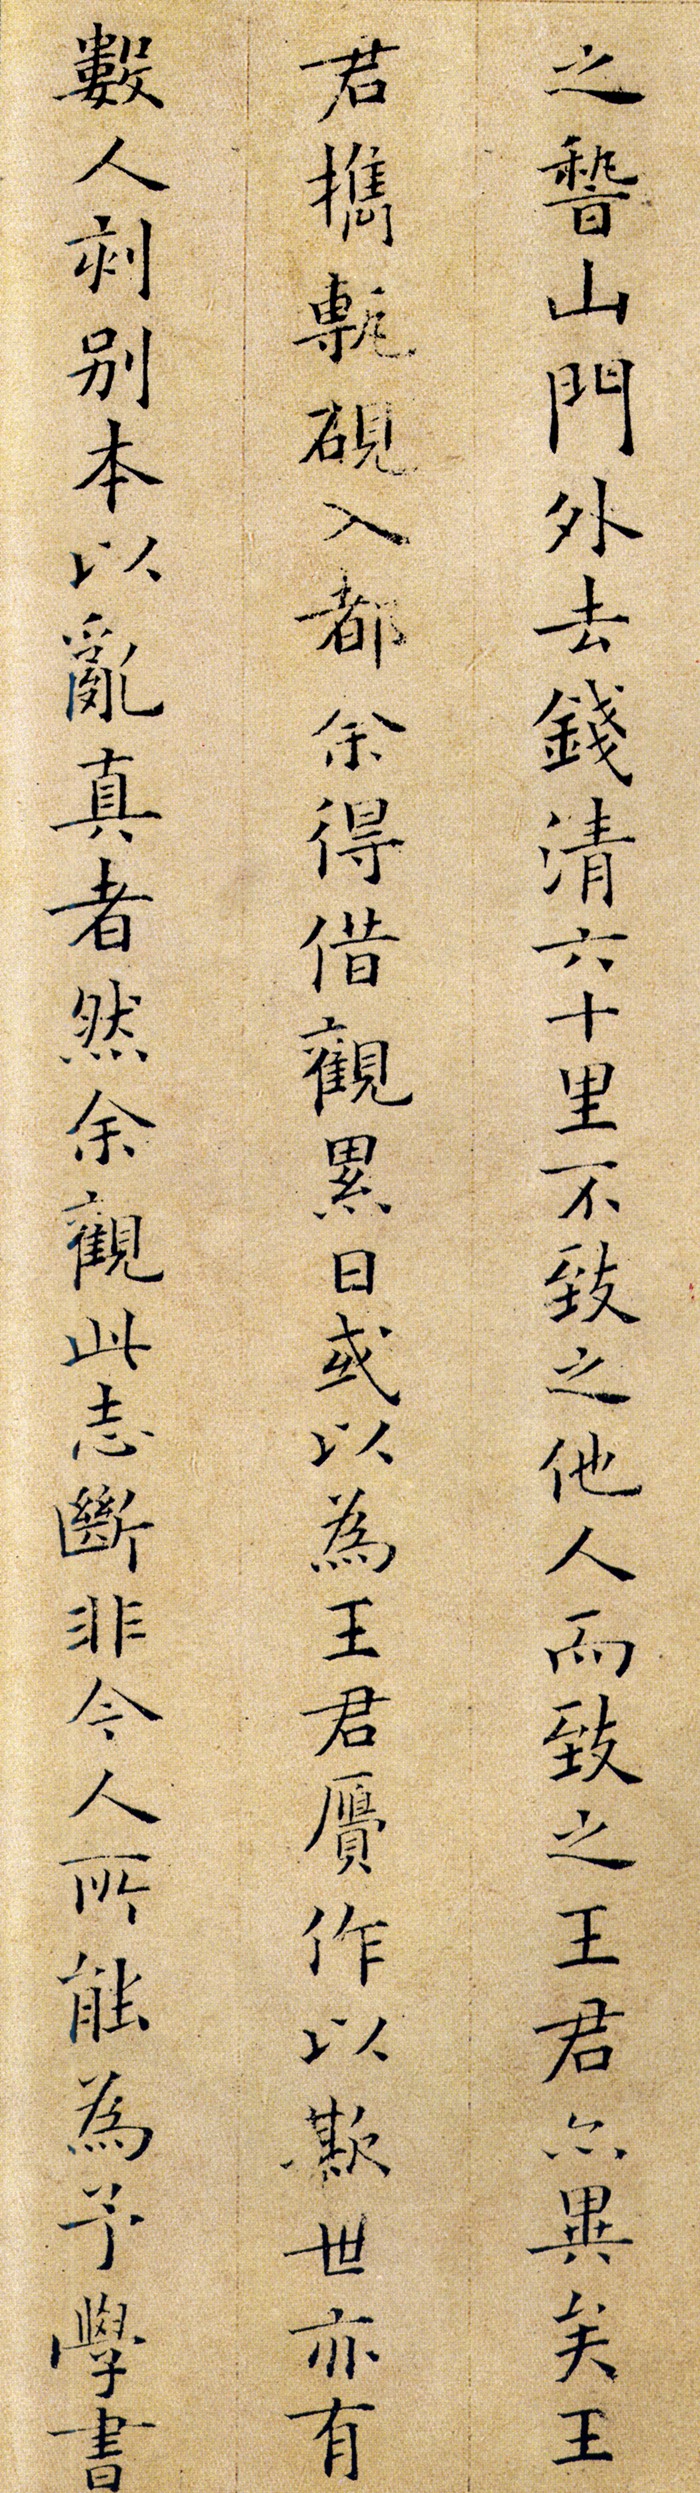 之稽山門外去錢清六十里不致之他人而致之王君亦異矣王
君携甎硯入都余得借觀累日或以為王君贗作以欺世亦有
數人刻别本以亂真者然余觀此志斷非今人所能為予學書